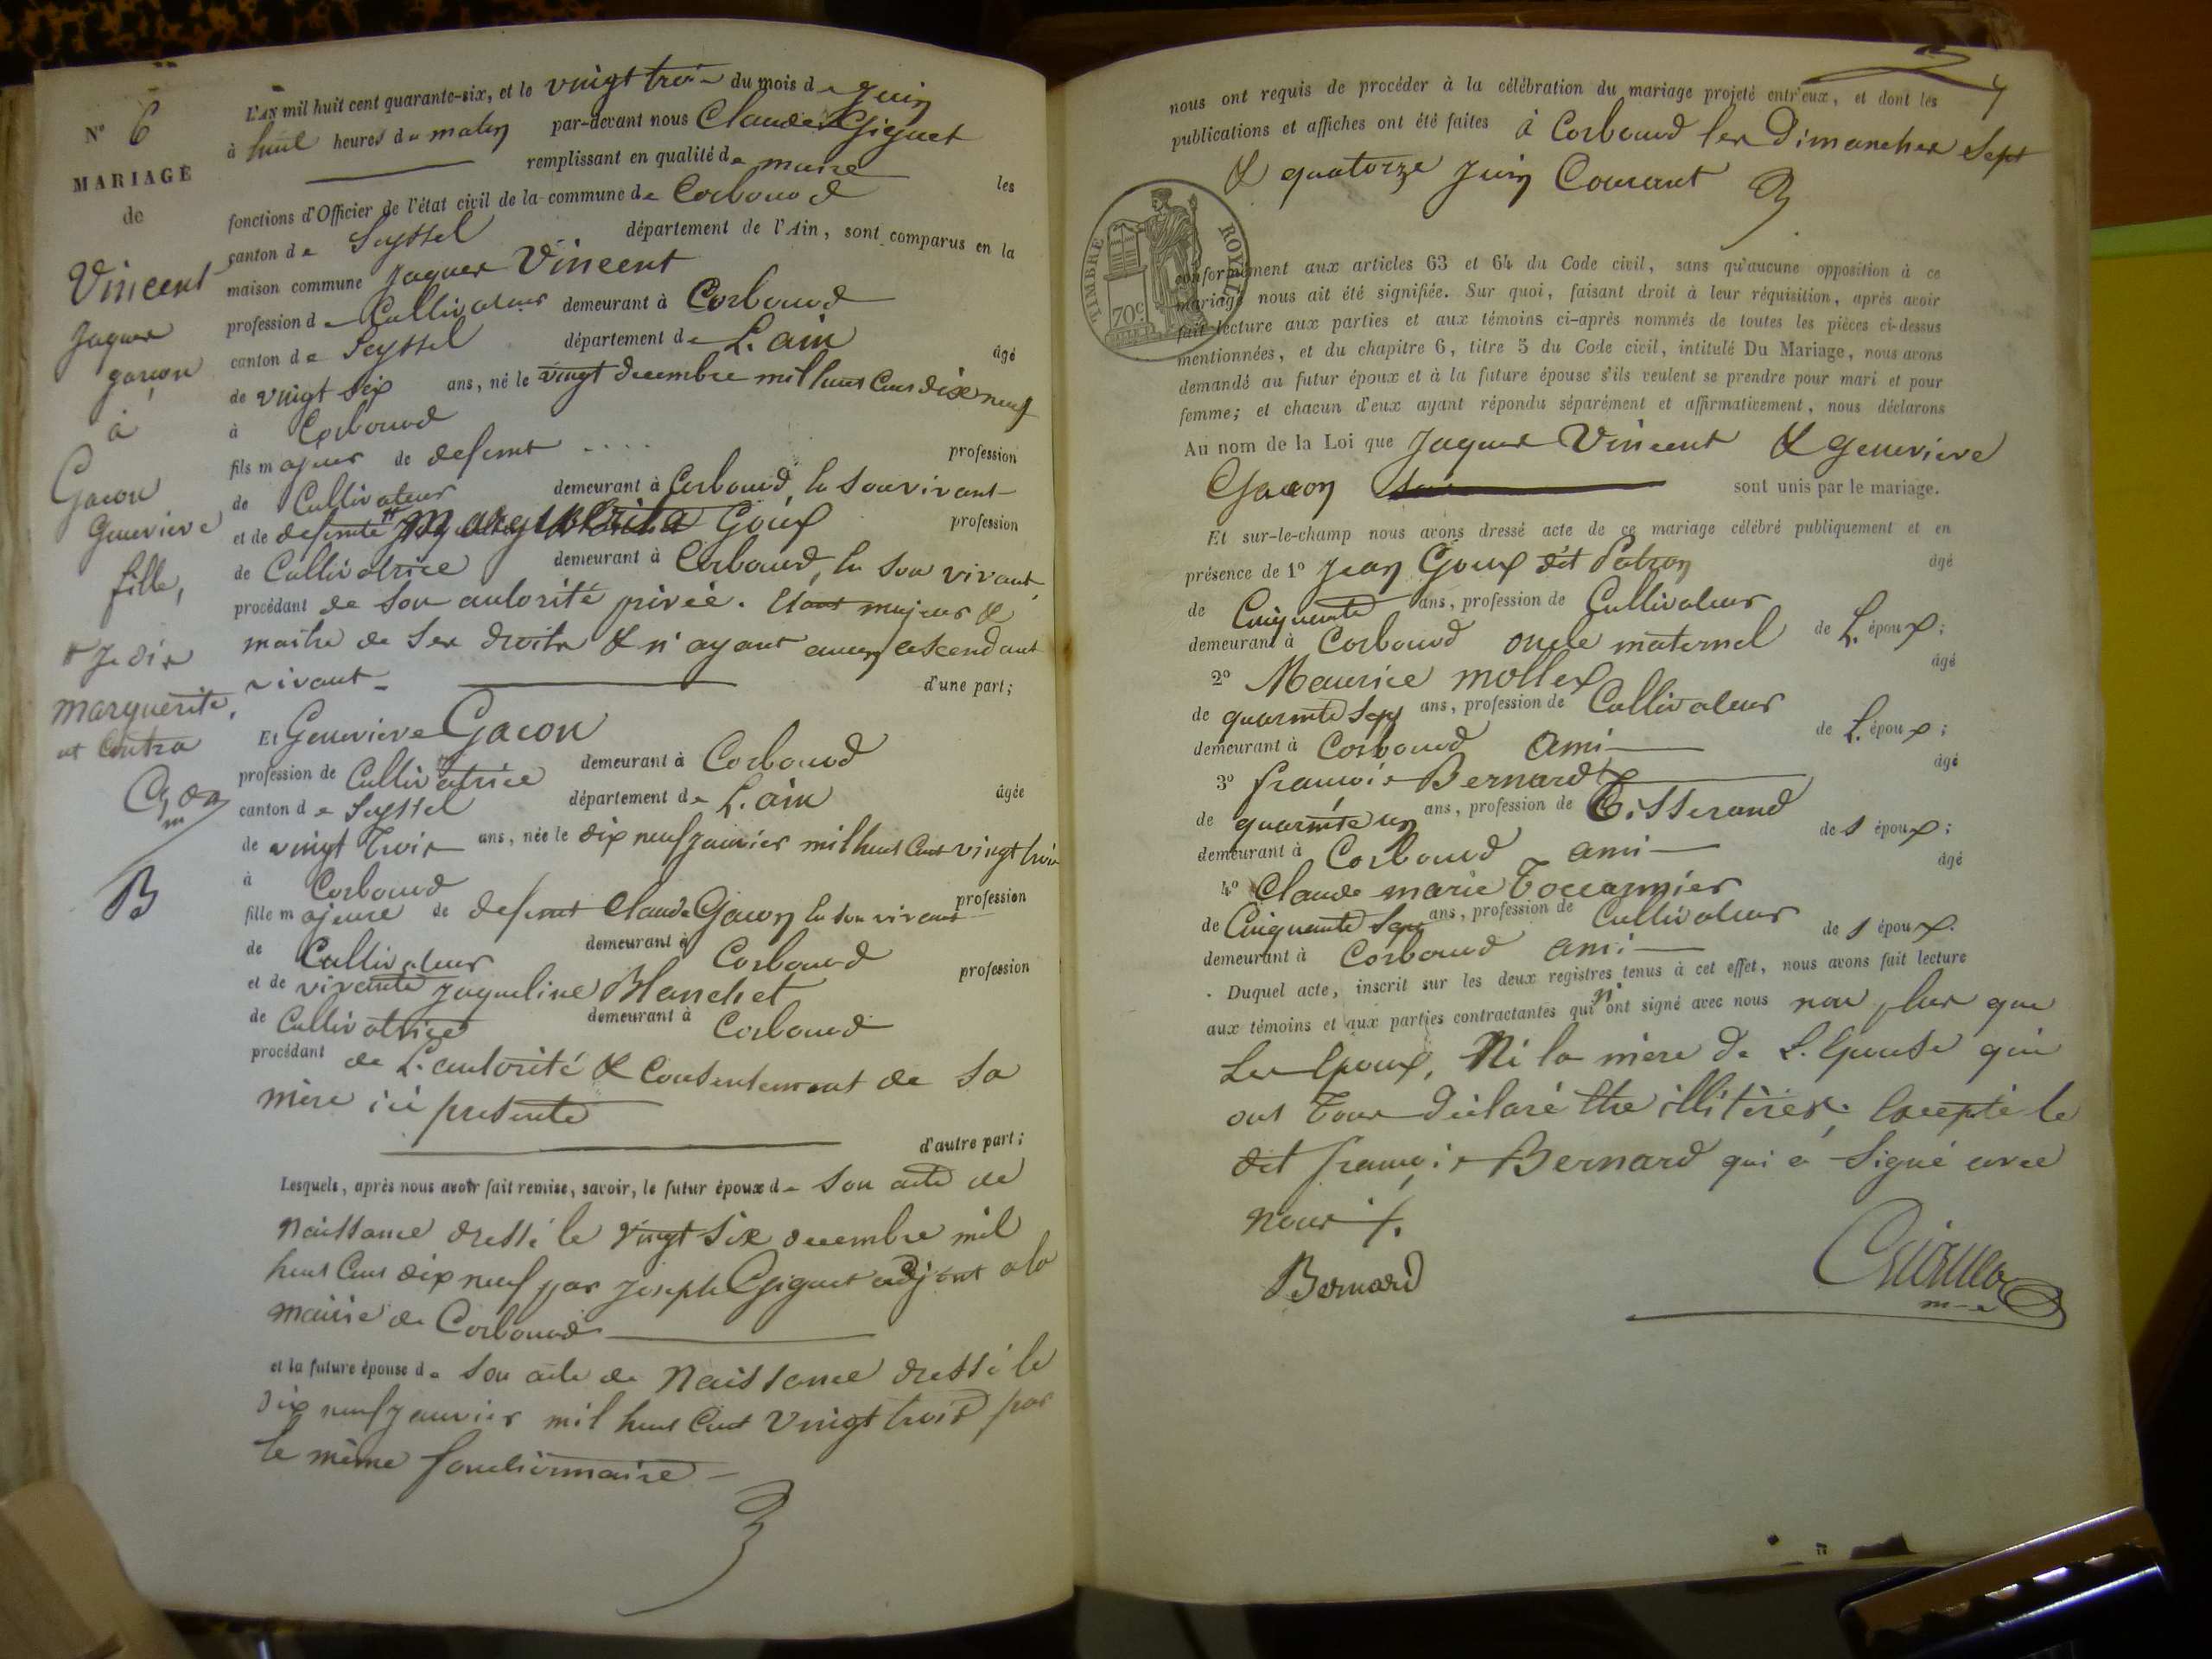 N° 6
MARIAGE
de
Vincent
Jaques
garçon
à
Gacon
Genevieve
fille,
+ Je dis
marguerite,
B
L'AN mil huit cent quarante-six, et le vingt trois du mois de Juin
à huit heures du matin par-devant nous Claude Giguet
remplissant en qualité de maire les
fonctions d'Officier de l'état civil de la commune de Corbonod
canton de Seyssel département de l'Ain, sont comparus en la
maison commune Jaques Vincent
profession de Cultivateur demeurant à Corbonod
canton de Seyssel département de L'ain âgé
de vingt six ans, né le vingt decembre mil huit Cent dix neuf
à Corbonod
fils majeur de defunt .... profession
de Cultivateur demeurant à Corbonod, la son vivant
et de defunte Goux profession
de Cultivatrice demeurant à Corbonod, la son vivant,
procédant de son autorité privée. Etant majeur &
maitre de ses droits & n'ayant aucun ascendant
vivant d'une part;
Et Genevieve Gacon
profession de Cultivatrice demeurant à Corbonod
canton de Seyssel département de L'ain âgée
de vingt trois ans, née le dix neuf janvier mil huit Cent vingt trois
à Corbonod
fille majeure de defunt Claude Gacon la son vivant profession
de Cultivateur demeurant à Corbonod
et de vivante Jaqueline Blanchet profession
de Cultivatrice demeurant à Corbonod
procédant de L'autorité & Consentement de sa
mère ici presente
d'autre part;
Lesquels, après nous avoir fait remise, savoir, le futur époux de son acte de
Naissance dressé le vingt six decembre mil
huit Cent dix neuf par Joseph Giguet adjoint a la
mairie de Corbonod
et la future épouse de son acte de Naissance dressé le
dix neuf janvier mil huit Cent vingt trois par
le même fonctionnaire
nous ont requis de procéder à la célébration du mariage projeté entr'eux, et dont les
publications et affiches ont été faites à Corbonod les Dimanches Sept
& quatorze Juin Courant
TIMBRE ROYAL
70c.
conformément aux articles 63 et 64 du Code civil, sans qu'aucune opposition à ce
mariage nous ait été signifiée. Sur quoi, faisant droit à leur réquisition, après avoir
fait lecture aux parties et aux témoins ci-après nommés de toutes les pièces ci-dessus
mentionnées, et du chapitre 6, titre 5 du Code civil, intitulé Du Mariage, nous avons
demandé au futur époux et à la future épouse s'ils veulent se prendre pour mari et pour
femme; et chacun d'eux ayant répondu séparément et affirmativement, nous déclarons
Au nom de la Loi que Jaques Vincent & Genevieve
Gacon sont unis par le mariage.
Et sur-le-champ nous avons dressé acte de ce mariage célébré publiquement et en
présence de 1° Jean Goux dit Patron âgé
de Cinquante ans, profession de Cultivateur
demeurant à Corbonod oncle maternel de L'époux;
2° Maurice mollex âgé
de quarante sept ans, profession de Cultivateur
demeurant à Corbonod ami de L'époux;
3° francois Bernard âgé
de quarante un ans, profession de Tisserand
demeurant à Corbonod ami des époux;
4° Claude marie Toccannier âgé
de Cinquante Sept ans, profession de Cultivateur
demeurant à Corbonod ami des époux.
Duquel acte, inscrit sur les deux registres tenus à cet effet, nous avons fait lecture
aux témoins et aux parties contractantes qui n'ont signé avec nous non plus que
Les Epoux, Ni la mère de L'épouse qui
ont Tous déclaré être illitères. Excepté le
dit françois Bernard qui a signé avec
nous
Bernard